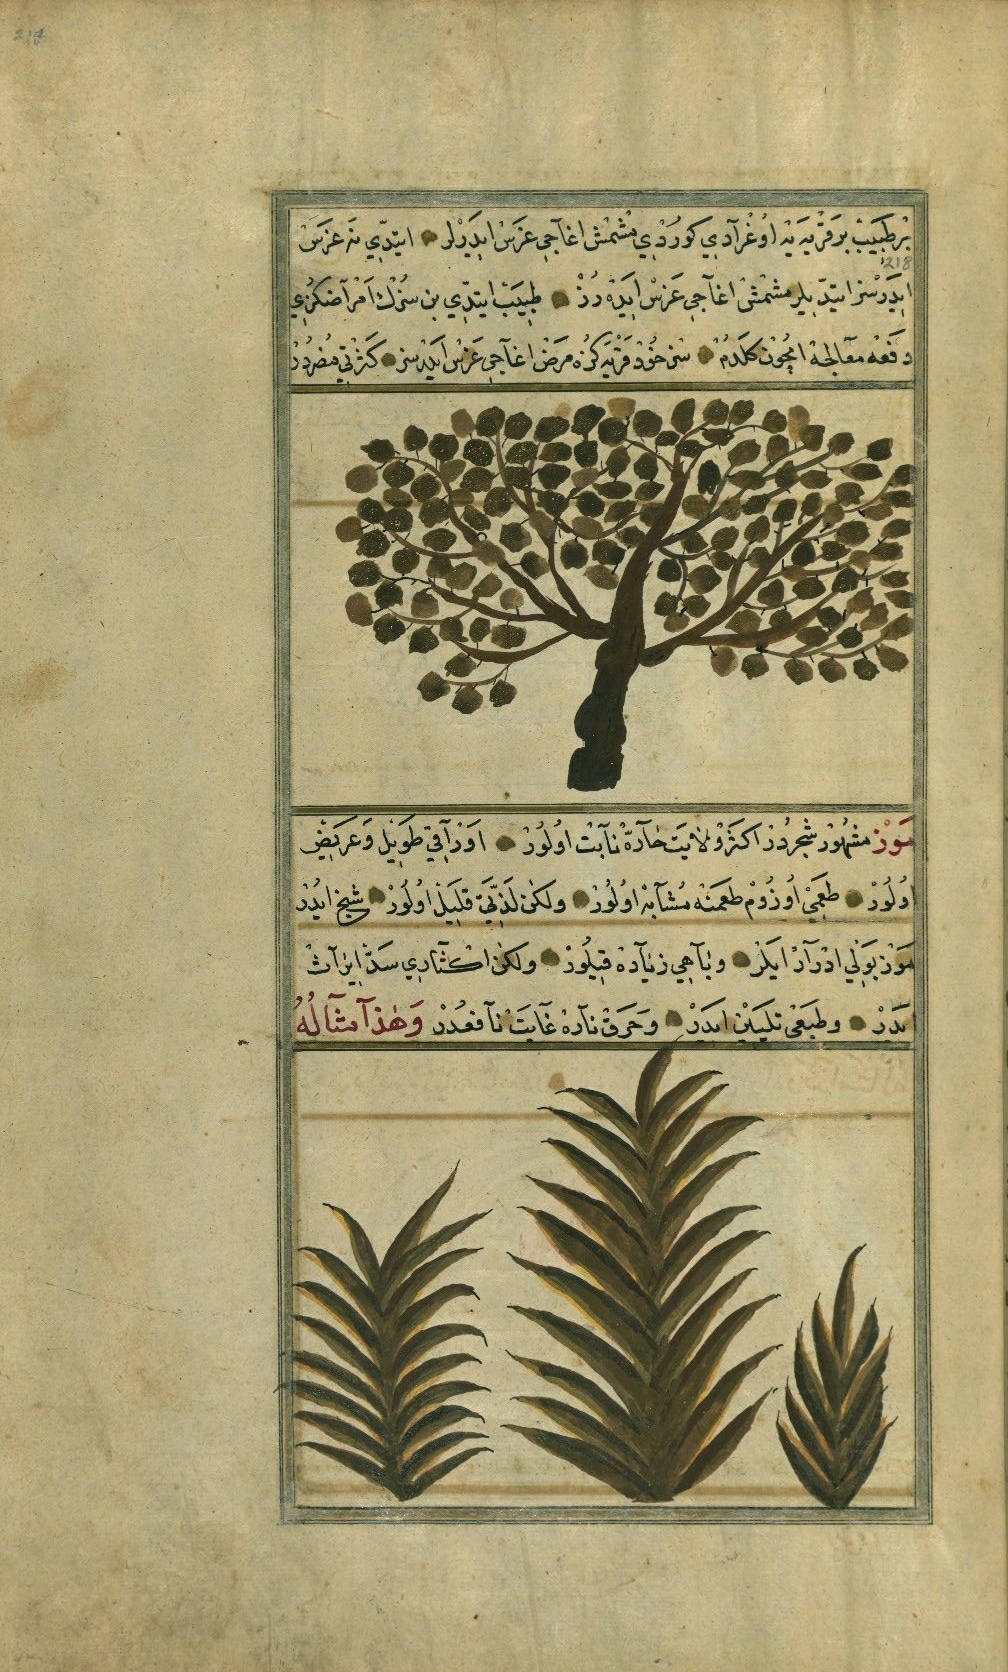 217
بر طبيب بر قريه يه اوغرادي كوردي مشمش اغاجي غرس ايدرلر ايتدي نه غرس
218
ايدرسز ايتديلر مشمش اغاجي غرس ايده رز طبيب ايتدي بن سزك امراضكزي
دفعه معالجة ايچون كلدم سز خود قريه كزه مرض اغاجي غرس ايدرسز كثرتي مضردر
موز مشهور شجردر اكثر ولايت حارة نابت اولور اوراقي طويل وعريض
اولور طعمي اوزوم طعمنه مشابه اولور ولكن لذتي قليل اولور شيخ ايدر
موز بولي ادرار ايلر وباهي زياده قيلور ولكن اكثاري سدة ايراث
ايدر وطبعي تليين ايدر وحرق ناره غايت نافعدر وهذا مثاله